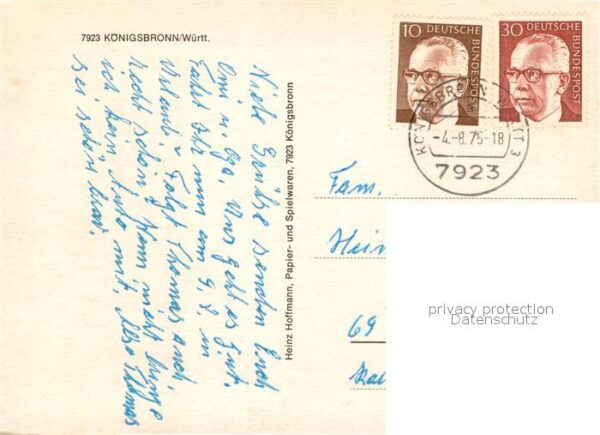 7923 KÖNIGSBRONN/Württ.
10 DEUTSCHE BUNDESPOST
30 DEUTSCHE BUNDESPOST
-4.-8.75-18
7923
Viele Grüße senden Euch
Omi u. Opa. Uns geht es gut.
Fahrt Ihr nun am 9.8. in
Urlaub? Folgt Thomas auch
recht schön? Wenn nicht bringe
ich kein Auto mit. Also Thomas
sei schön brav.
Heinz Hoffmann, Papier- und Spielwaren, 7923 Königsbronn
Fam.
Hein
69
privacy protection
Datenschutz